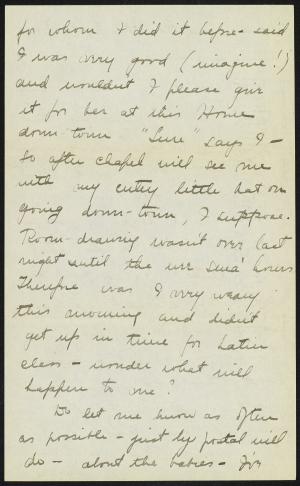 for whom I did it before - said
I was very good (imagine!)
and wouldn't I please give
it for her at this Home
down-town "Sure" says I -
So after chapel will see me
with my cutey little hat on
going down-town, I suppose.
Room-drawing wasn't over last
night until the wee sma' hours
Therefore was I very weary
this morning and didn't
get up in time for Latin
class - wonder what will
happen to me?
Do let me know as often
as possible - just by postal will
do - about the babies - I've